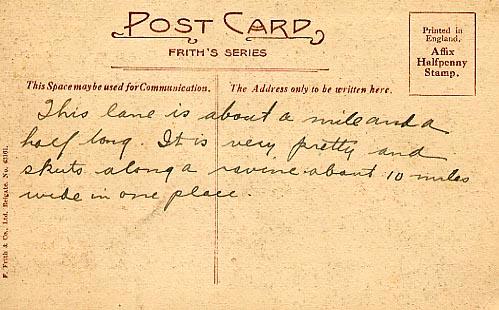 POST CARD
FRITH'S SERIES
Printed in
England.
Affix
Halfpenny
Stamp.
This Space may be used for Communication.
The Address only to be written here.
This lane is about a mile and a
half long. It is very pretty and
skirts along a ravine about 10 miles
wide in one place.
F. Frith & Co., Ltd., Reigate. No. 43101.